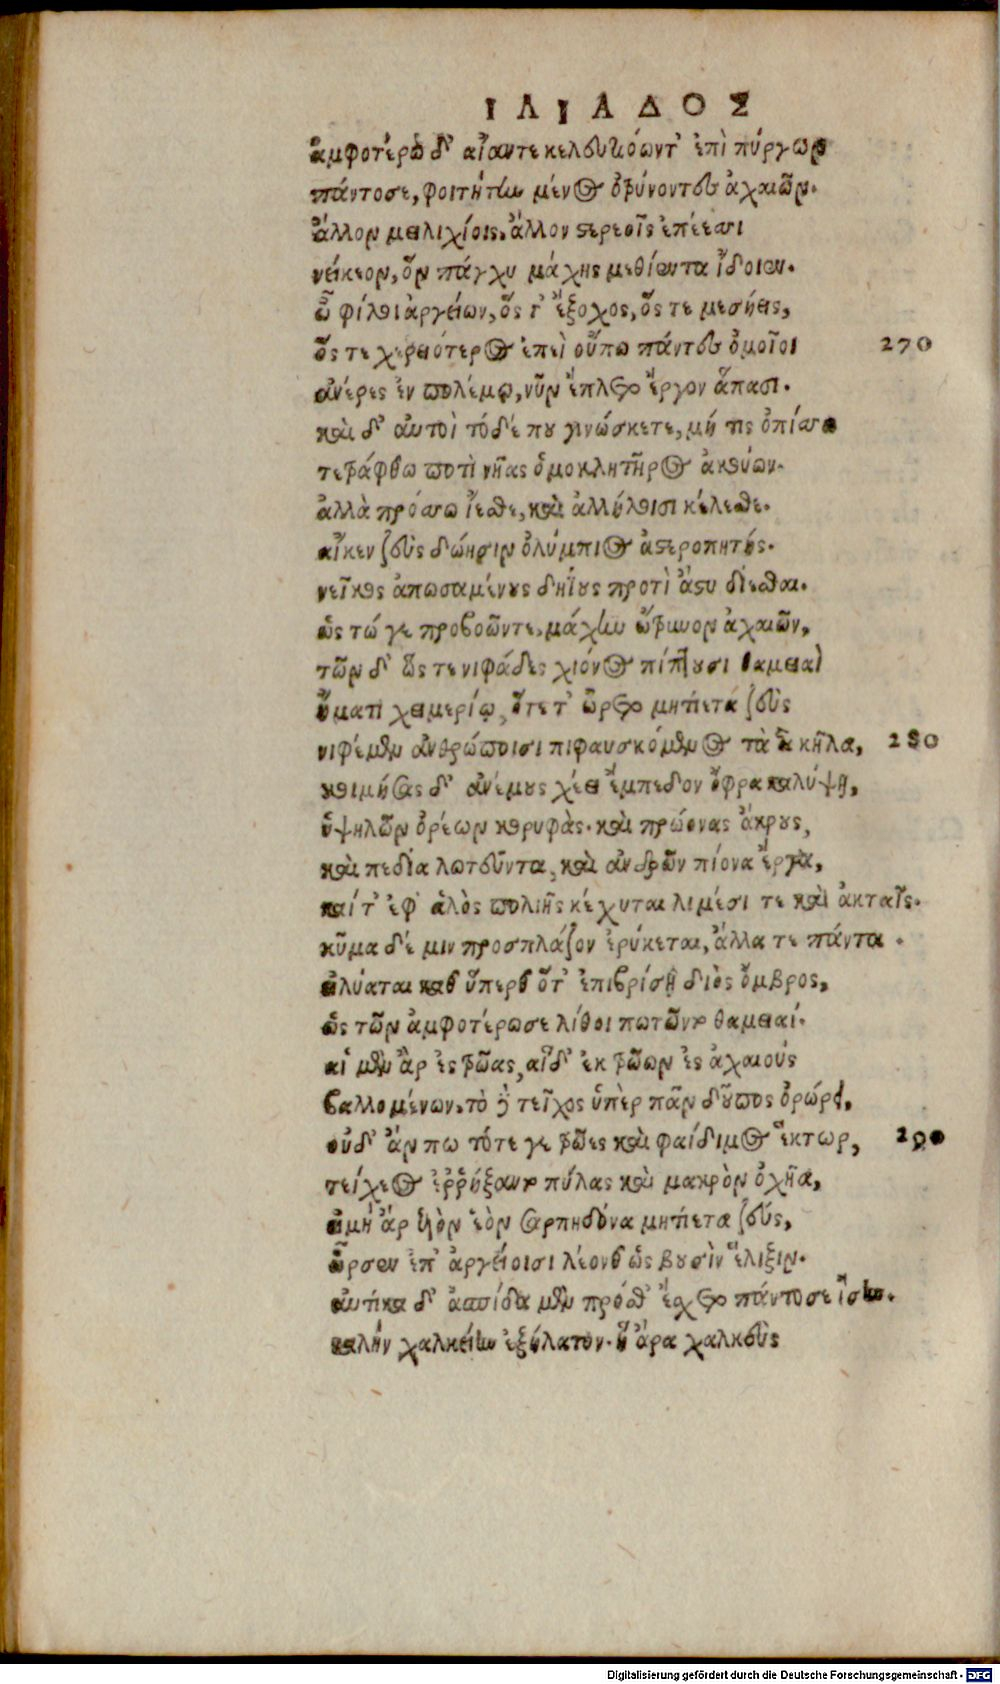 ΙΛΙΑΔΟΣ
ἀμφοτέρω δ' αἴαντε κελευτιόωντ' ἐπὶ πύργων
πάντοσε, φοιτήτην μένος ὀτρύνοντες ἀχαιῶν.
ἄλλον μειλιχίοις, ἄλλον στερεοῖς ἐπέεσσι
νείκεον, ὃν πάγχυ μάχης μεθίεντα ἴδοιεν.
ὦ φίλοι ἀργείων, ὅς τ' ἔξοχος, ὅς τε μεσήεις,
ὅς τε χερειότερος ἐπεὶ οὔπω πάντες ὁμοῖοι 270
ἀνέρες ἐν πολέμῳ, νῦν ἔπλετο ἔργον ἅπασι.
καὶ δ' αὐτοὶ τόδέ που γινώσκετε, μή τις ὀπίσσω
τετράφθω ποτὶ νῆας ὁμοκλητῆρος ἀκούων.
ἀλλὰ πρόσσω ἵεσθε, καὶ ἀλλήλοισι κέλεσθε.
αἴκεν ζεὺς δώησιν ὀλύμπιος ἀστεροπητής.
νεῖκος ἀπωσαμένους δηΐους προτὶ ἄστυ δίεσθαι.
ὣς τώ γε προβοῶντε, μάχην ὤτρυνον ἀχαιῶν,
τῶν δ' ὥς τε νιφάδες χιόνος πίπτουσι θαμειαὶ
ἤματι χειμερίῳ, ὅτε τ' ὤρετο μητίετα ζεὺς
νιφέμεν ἀνθρώποισι πιφαυσκόμενος τὰ ἃ κῆλα, 280
κοιμήσας δ' ἀνέμους χέει ἔμπεδον ὄφρα καλύψῃ,
ὑψηλῶν ὀρέων κορυφὰς. καὶ πρώονας ἄκρους,
καὶ πεδία λωτεῦντα, καὶ ἀνδρῶν πίονα ἔργα,
καί τ' ἐφ' ἁλὸς πολιῆς κέχυται λιμέσι τε καὶ ἀκταῖς.
κῦμα δέ μιν προσπλάζον ἐρύκεται, ἄλλα τε πάντα.
εἰλύαται καθ ὕπερθ ὅτ' ἐπιβρίσῃ διὸς ὄμβρος,
ὣς τῶν ἀμφοτέρωσε λίθοι πωτῶντο θαμειαί.
αἱ μὲν ἂρ ἐς τρῶας, αἵδ' ἐκ τρώων ἐς ἀχαιούς
βαλλομένων. τὸ δὲ τεῖχος ὑπὲρ πᾶν δοῦπος ὀρώρει,
οὐδ' ἄν πω τότε γε τρῶες καὶ φαίδιμος ἕκτωρ, 290
τείχεος ἐρρήξαντο πύλας καὶ μακρὸν ὀχῆα,
εἰμὴ ἄρ υἱὸν ἑὸν σαρπηδόνα μητίετα ζεύς,
ὦρσεν ἐπ' ἀργείοισι λέονθ ὣς βουσὶν ἕλιξιν.
αὐτίκα δ' ἀσπίδα μὲν πρόσθ' ἔσχετο πάντοσε ἴσην.
καλὴν χαλκείην ἐξήλατον. ἣν ἄρα χαλκεὺς
Digitalisierung gefördert durch die Deutsche Forschungsgemeinschaft - DFG